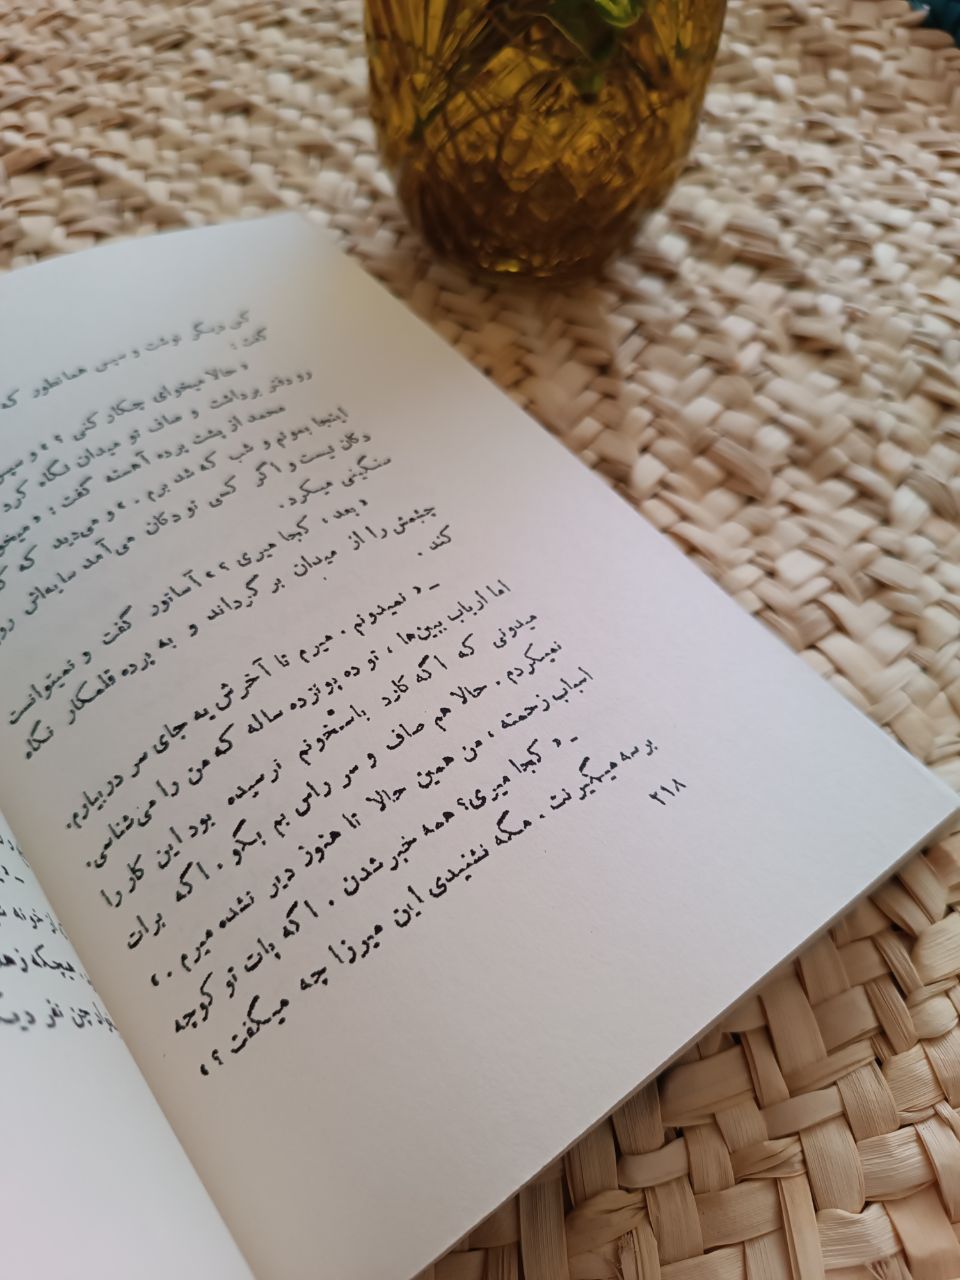 کی دیگر نوشت و سپس همانطور که
گفت:
«حالا میخوای چکار کنی؟» و سپس
رو دفتر برداشت و صاف تو میدان نگاه کرد
محمد از پشت پرده آهسته گفت: «میخو
اینجا بمونم و شب که شد برم.» و می‌دید که
دکان نیست و اگر کمی تو دکان می‌آمد سایه‌اش رو
سنگینی میکرد.
«بعد، کجا میری؟» آساتور گفت و نمیتوانست
چشمش را از میدان بر گرداند و به پرده قلمکار نگاه
کند.
ـ «نمیدونم. میرم تا آخرش یه جای سر دربیارم.
اما ارباب ببین‌ها، تو ده پونزده ساله که من را می‌شناسی.
میدونی که اگه کارد باسخونم نرسیده بود این کار را
نمیکردم. حالا هم صاف و سر راس بم بگو. اگه برات
اسباب زحمته، من همین حالا تا هنوز دیر نشده میرم.»
ـ «کجا میری؟ همه خبر شدن. اگه پات تو کوچه
برسه میگیرنت. مگه نشنیدی این میرزا چه میگفت؟»
۲۱۸
از خونه
هیچکه زهر
چن نفر دیگ